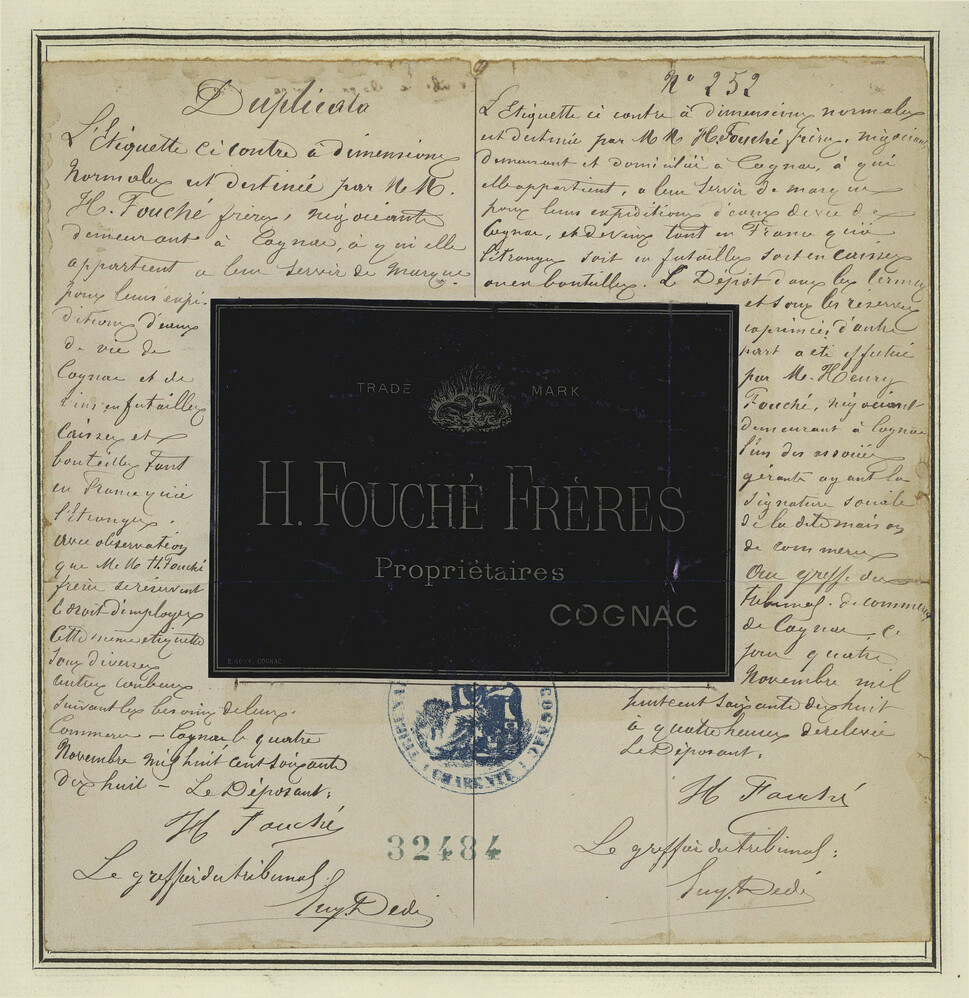 Duplicata
L'Etiquette ci contre à dimensions
Normales est destinée par MM.
H. Fouché frères, négociants
demeurant à Cognac, à qui elle
appartient a leur servir de marque
pour leurs expé-
ditions d'eaux
de vie de
Cognac et de
vins en futailles
caisses et
bouteilles tant
en France qu'à
l'Etranger.
avec observation
que MM. H. Fouché
frères se réservent
le droit d'employer
Cette même etiquette
sous diverses
autres couleurs
suivant les besoins de leur
Commerce - Cognac le quatre
Novembre mil huit cent soixante
dix huit - Le Déposant:
H Fouché
Le greffier du tribunal
N° 252
L'Etiquette ci contre à dimensions normales
est destinée par MM H. Fouché frères, négociants
demeurant et domiciliés à Cognac, à qui
elle appartient, a leur servir de marque
pour leurs expéditions d'eaux de vie de
Cognac, et de vins tant en France qu'à
l'étranger soit en futailles soit en caisses
ou en bouteilles. Le Dépôt dans les termes
et sous les reserves
exprimées d'autre
part a été effectué
par M. Henry
Fouché, négociant
demeurant à Cognac
l'un des associés
gérants ayant la
signature sociale
de la dite maison
de commerce
Au greffe du
tribunal de commerce
de Cognac, ce
jour quatre
Novembre mil
huit cent soixante dix huit
à quatre heures de relevée
Le Déposant,
H Fouché
Le greffier du tribunal:
TRADE MARK
H. FOUCHÉ FRÈRES
Propriétaires
COGNAC
COGNAC
CHARENTE
32484